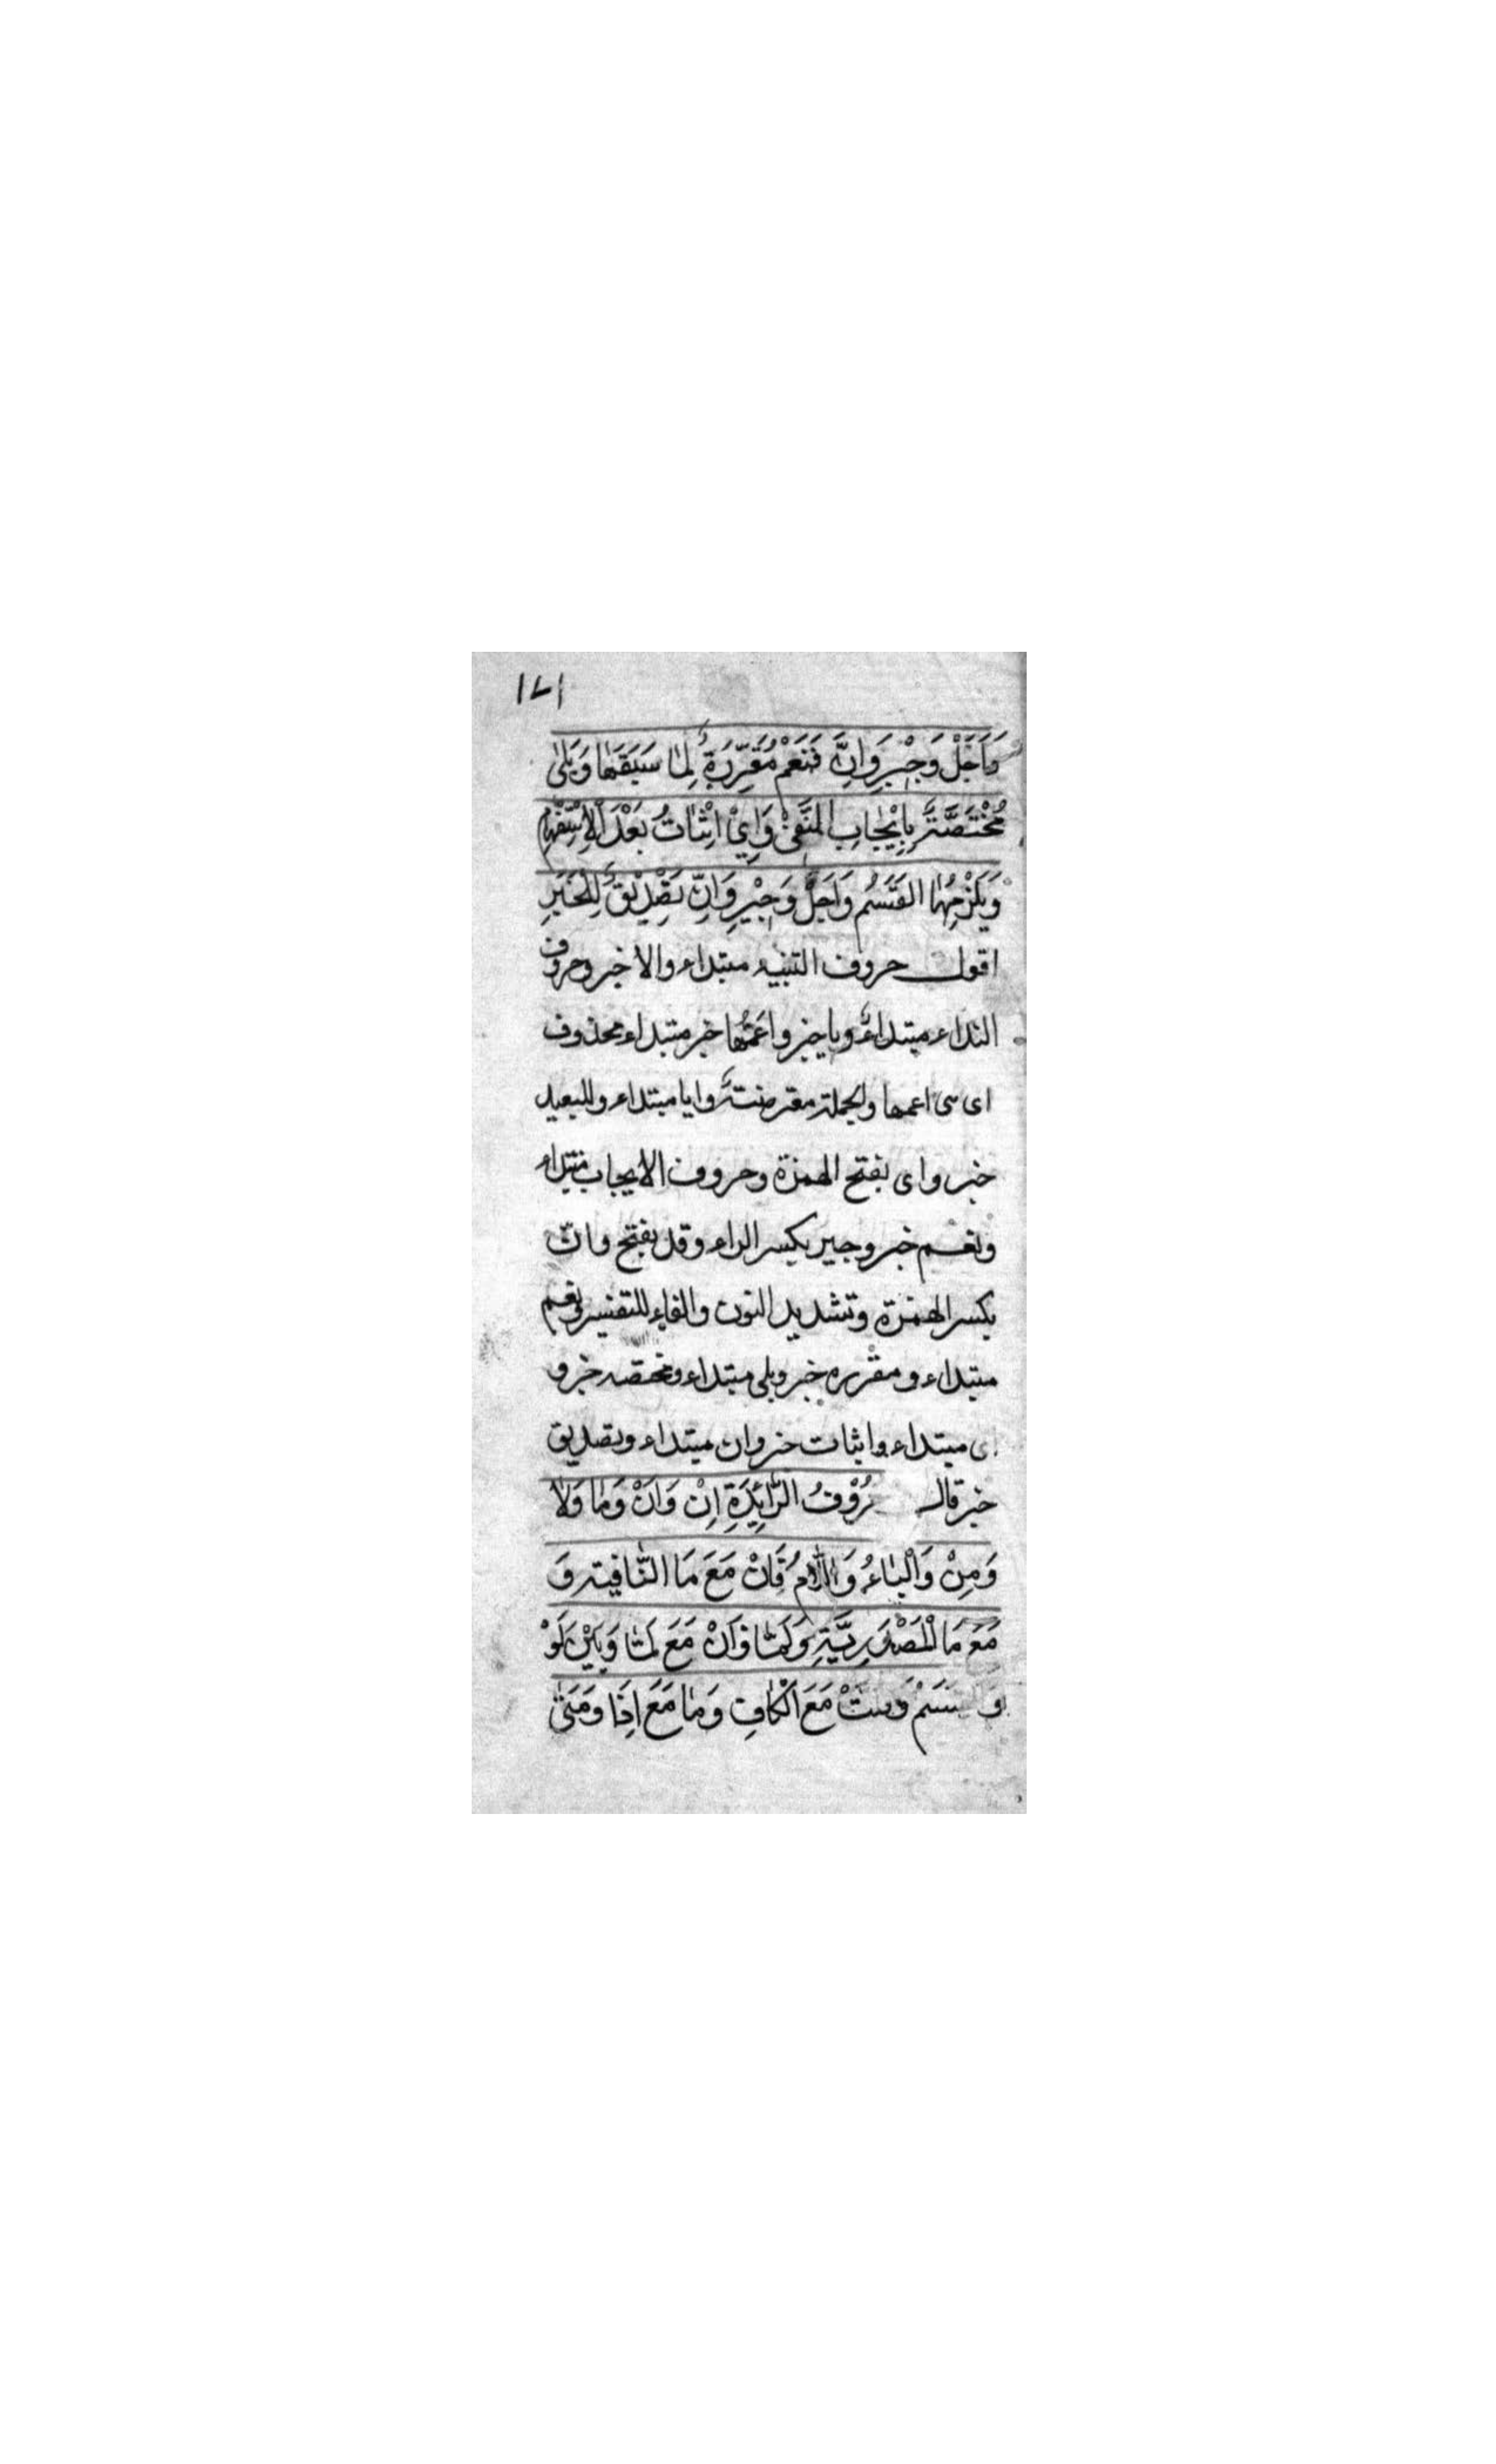 ١٧١
وَاَجَلْ وَجَيْرِ وَاِنَّ فَنَعَمْ مُقَرِّرَةٌ لِمَا سَبَقَهَا وَبَلٰى
مُخْتَصَّةٌ بِاِيْجَابِ النَّفْىِ وَاِىْ اِثْبَاتُ بَعْدَ الْاِسْتِفْهَامِ
وَيَلْزَمُهَا القَسَمُ وَاَجَلْ وَجَيْرِ وَاِنَّ تَصْدِيْقٌ لِلْخَبَرِ
اقول حروف التنبيه مبتداء والا خبر وحروف
النداء مبتداءٌ ويا خبر واعمُّها خبر مبتداء محذوف
اى هى اعمها والجملة معترضة وايا مبتداء وللبعيد
خبر واى بفتح الهمزة وحروف الايجاب مبتداء
ونعم خبر وجير بكسر الراء وقد يفتح وانّ
بكسر الهمزة وتشديد النون والفاء للتفسير ونعم
مبتداء ومقرره خبر وبلى مبتداء ومختصه خبر و
اى مبتداء واثبات خبر وان مبتداء وتصديق
خبر قال حُرُوْفُ الزَّايِدَةِ اِنْ وَاَنْ وَمَا وَلَا
وَمِنْ وَالْبَاءُ وَاللَّامُ فَاِنْ مَعَ مَا النَّافِيَة وَ
مَعَ مَا الْمَصْدَرِيَّةِ وَلَمَّا وَاَنْ مَعَ لَمَّا وَبَيْنَ لَوْ
وَ مَعَ الْكَافِ وَمَا مَعَ اِذَا وَمَتٰى